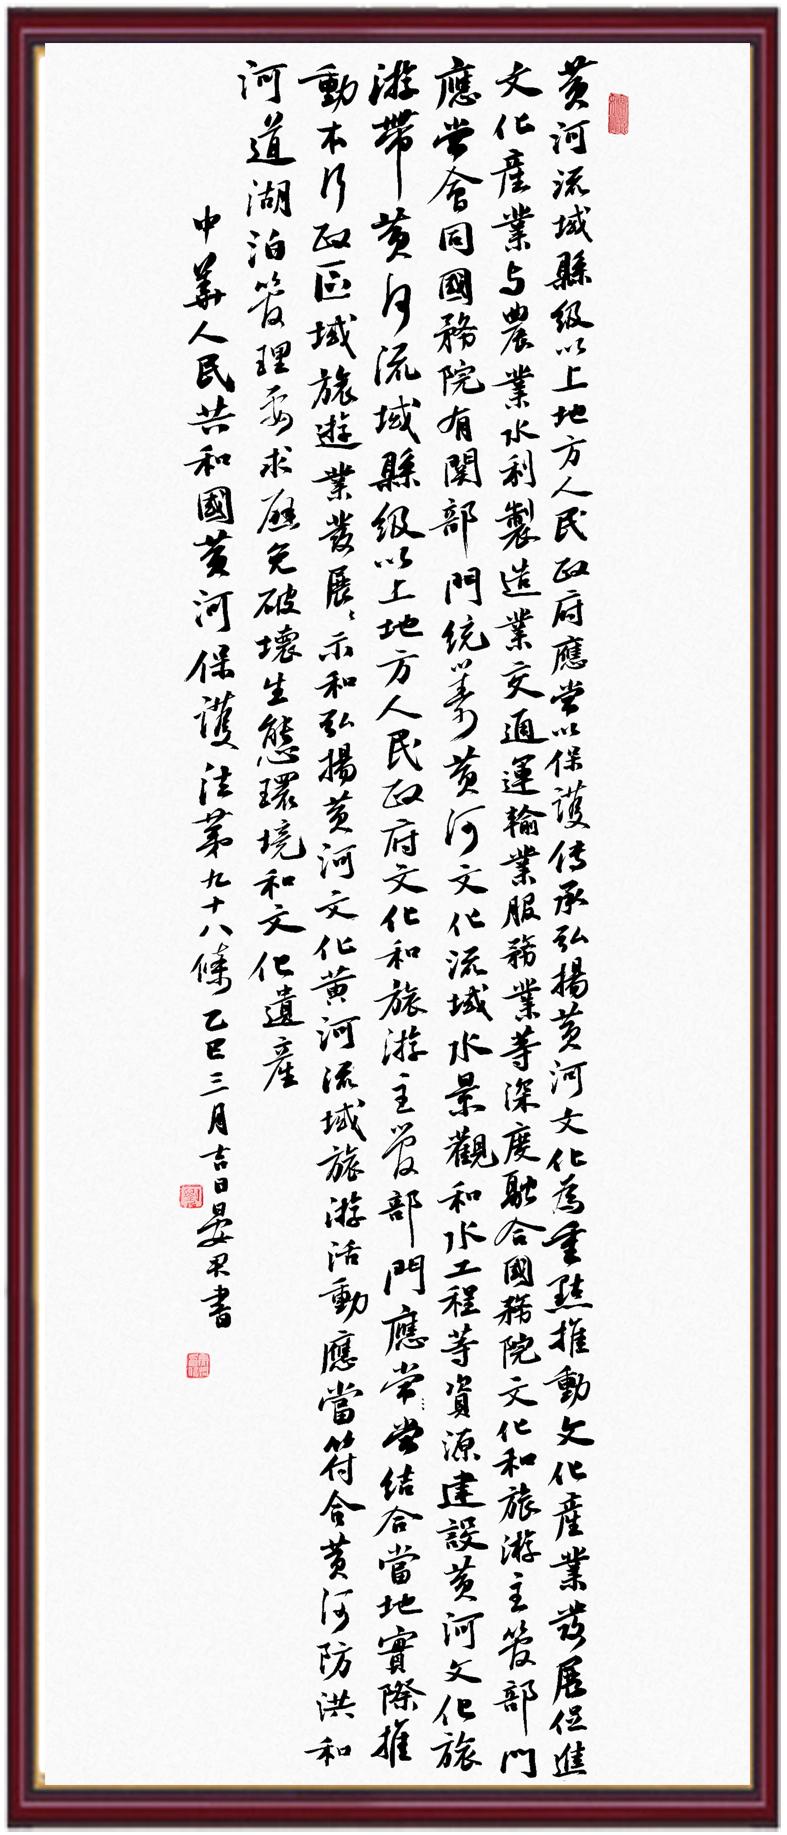 黄河流域縣級以上地方人民政府應當以保護傳承弘揚黄河文化為重點推動文化產業發展促進
文化產業与農業水利製造業交通運輸業服務業等深度融合國務院文化和旅游主管部門
應當會同國務院有関部門統籌黄河文化流域水景觀和水工程等資源建設黄河文化旅
游帶黄河流域縣級以上地方人民政府文化和旅游主管部門應常當結合當地實際推
動本行政區域旅遊業發展々示和弘揚黄河文化黄河流域旅游活動應當符合黄河防洪和
河道湖泊管理要求避免破壞生態環境和文化遺産
中華人民共和國黄河保護法第九十八條乙巳三月吉日書